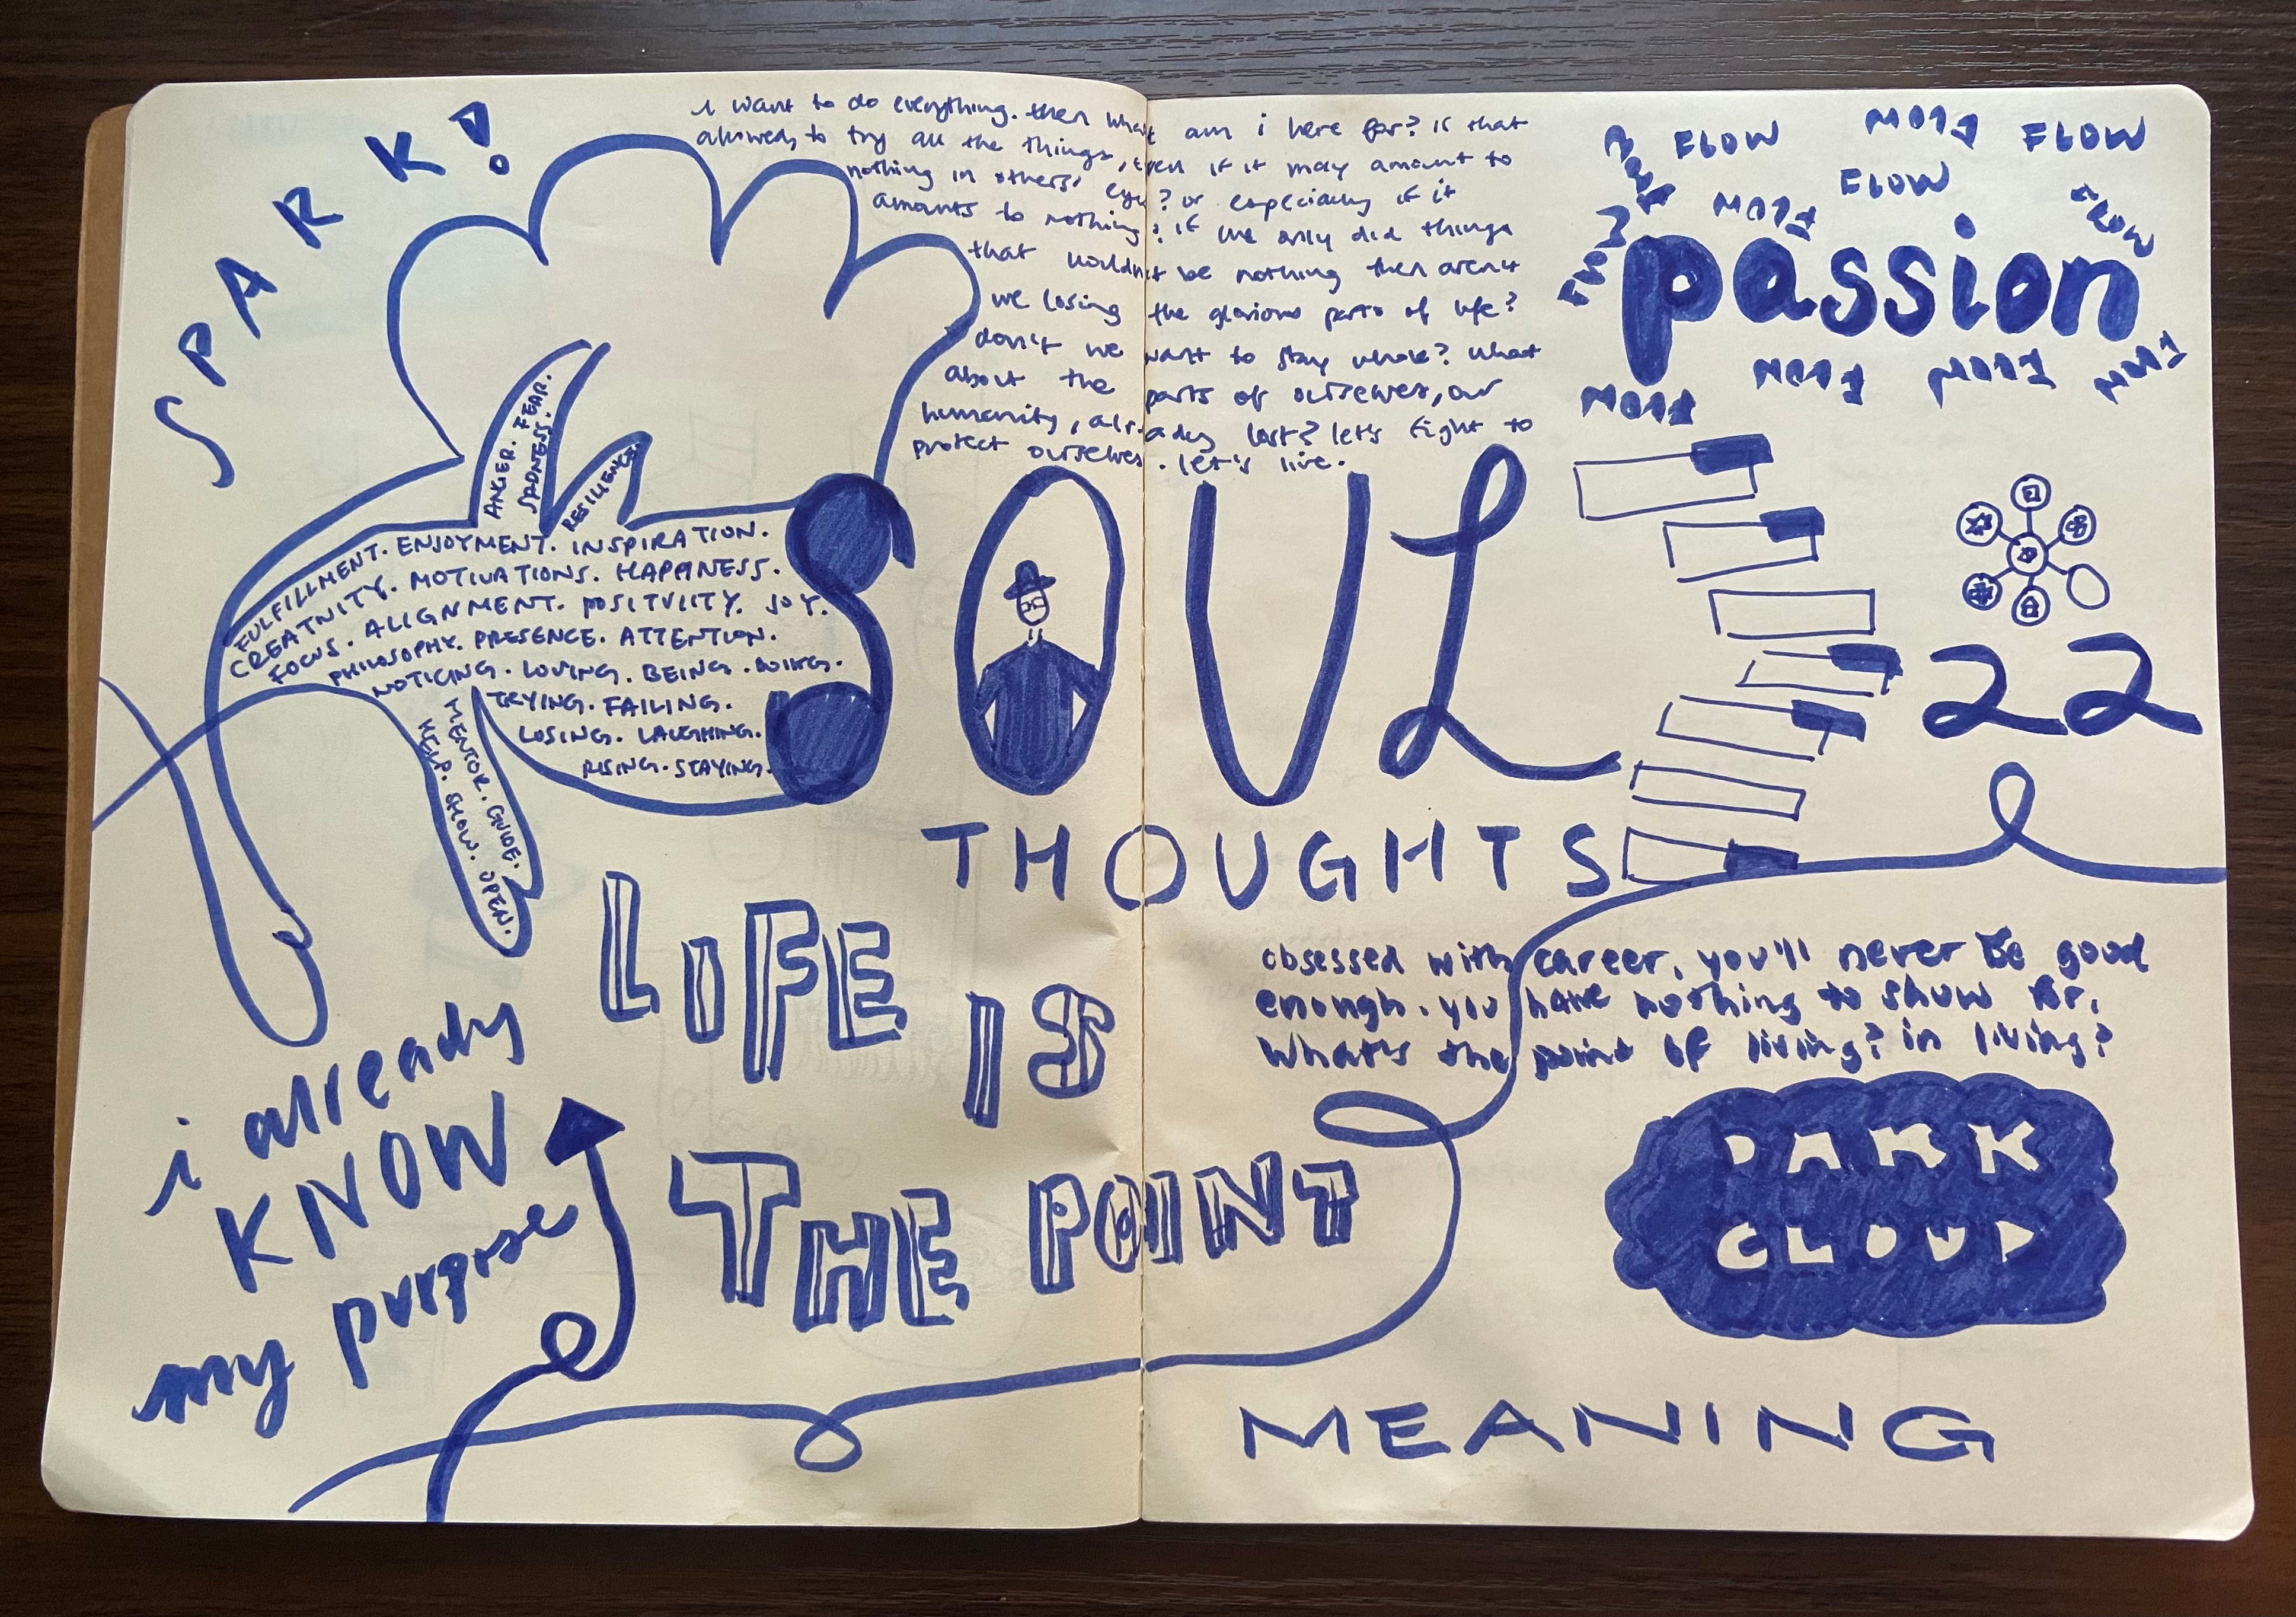 SPARK!
i want to do everything. then what am i here for? is that
allowed, to try all the things, even if it may amount to
nothing in others' eyes? or especially if it
amounts to nothing? if we only did things
that wouldn't be nothing then aren't
we losing the glorious parts of life?
don't we want to stay whole? what
about the parts of ourselves, our
humanity, already lost? let's fight to
protect ourselves. let's live.
FLOW
FLOW
FLOW
FLOW
FLOW
FLOW
FLOW
FLOW
passion
FLOW
FLOW
FLOW
FLOW
ANGER. FEAR.
SADNESS.
RESILIENCE.
FULFILLMENT. ENJOYMENT. INSPIRATION.
CREATNITY. MOTIVATIONS. HAPPINESS.
FOCUS. ALIGNMENT. POSITVIITY. JOY.
PHILOSOPHY. PRESENCE. ATTENTION.
NOTICING. LOVING. BEING. DOING.
TRYING. FAILING.
LOSING. LAUGHING.
RISING. STAYING.
MENTOR. GUIDE.
HELP. SHOW. OPEN.
SOUL
22
THOUGHTS
LIFE IS
THE POINT
obsessed with career. you'll never be good
enough. you have nothing to show for.
what's the point of living? in living?
i already
KNOW
my purpose
DARK
CLOUD
MEANING